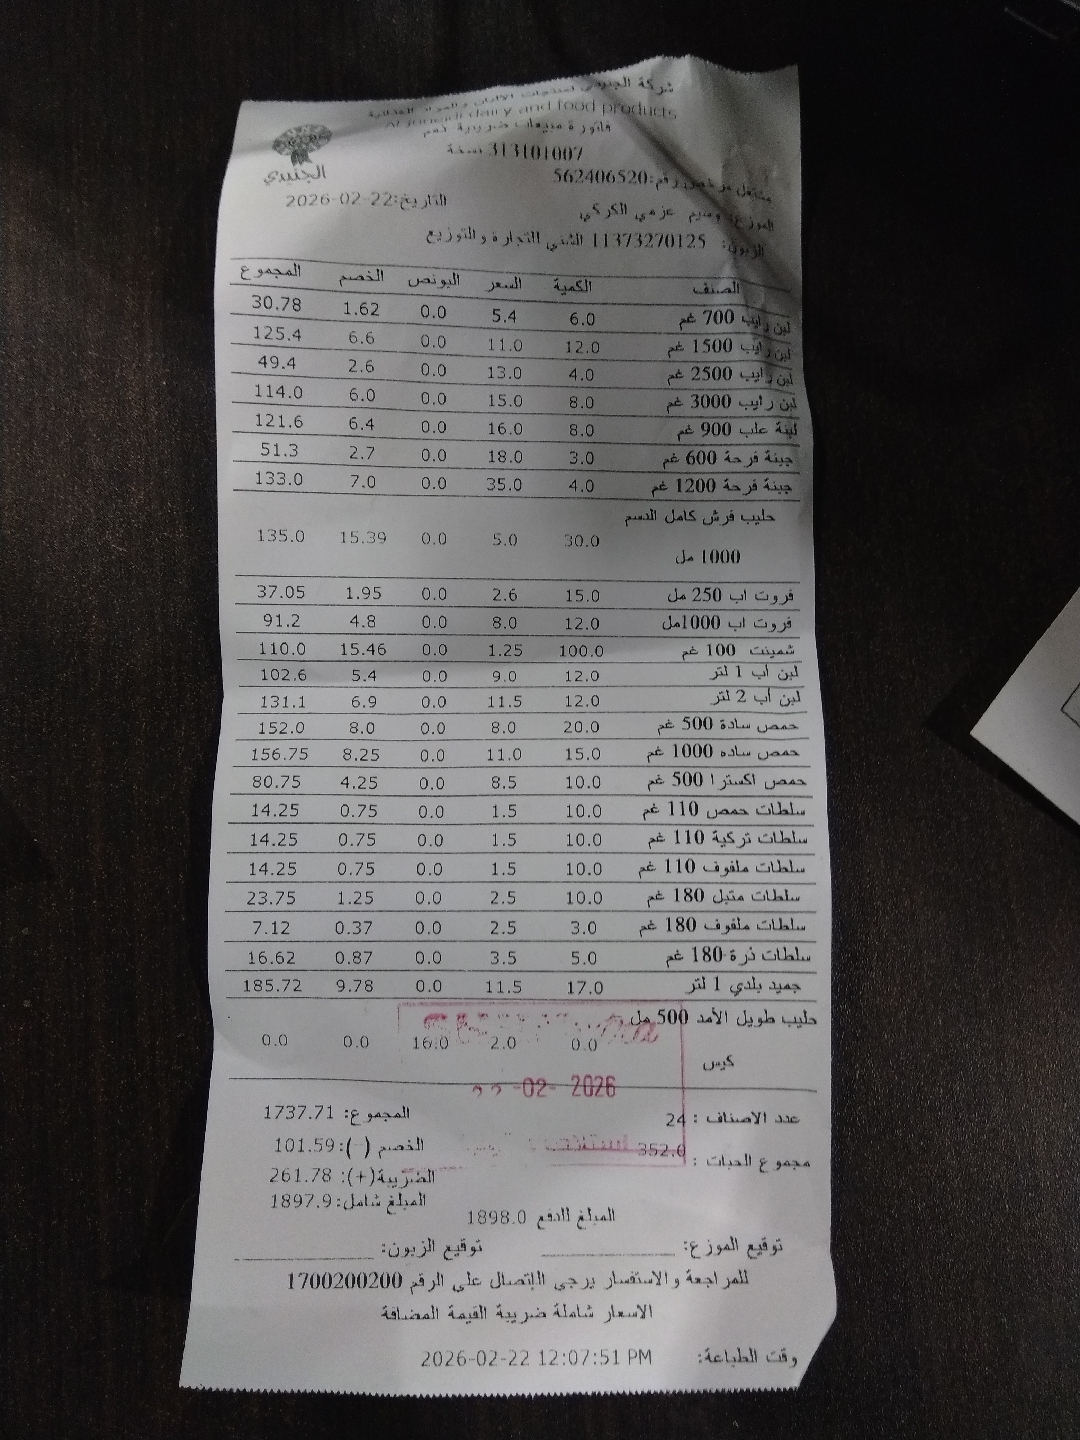 شركة الجنيدي لمنتجات الألبان والمواد الغذائية
Al Junaidi dairy and food products
فاتورة مبيعات ضريبية رقم
313101007 نسخة
الجنيدي
مشتغل مرخص رقم:562406520
التاريخ:22-02-2026
الموزع: وسيم عزمي الكركي
الزبون: 11373270125 الشني للتجارة والتوزيع
الصنف الكمية السعر البونص الخصم المجموع
لبن رايب 700 غم 6.0 5.4 0.0 1.62 30.78
لبن رايب 1500 غم 12.0 11.0 0.0 6.6 125.4
لبن رايب 2500 غم 4.0 13.0 0.0 2.6 49.4
لبن رايب 3000 غم 8.0 15.0 0.0 6.0 114.0
لبنة علب 900 غم 8.0 16.0 0.0 6.4 121.6
جبنة فرحة 600 غم 3.0 18.0 0.0 2.7 51.3
جبنة فرحة 1200 غم 4.0 35.0 0.0 7.0 133.0
حليب فرش كامل الدسم
1000 مل 30.0 5.0 0.0 15.39 135.0
فروت اب 250 مل 15.0 2.6 0.0 1.95 37.05
فروت اب 1000مل 12.0 8.0 0.0 4.8 91.2
شمينت 100 غم 100.0 1.25 0.0 15.46 110.0
لبن أب 1 لتر 12.0 9.0 0.0 5.4 102.6
لبن أب 2 لتر 12.0 11.5 0.0 6.9 131.1
حمص سادة 500 غم 20.0 8.0 0.0 8.0 152.0
حمص ساده 1000 غم 15.0 11.0 0.0 8.25 156.75
حمص اكسترا 500 غم 10.0 8.5 0.0 4.25 80.75
سلطات حمص 110 غم 10.0 1.5 0.0 0.75 14.25
سلطات تركية 110 غم 10.0 1.5 0.0 0.75 14.25
سلطات ملفوف 110 غم 10.0 1.5 0.0 0.75 14.25
سلطات متبل 180 غم 10.0 2.5 0.0 1.25 23.75
سلطات ملفوف 180 غم 3.0 2.5 0.0 0.37 7.12
سلطات ذرة 180 غم 5.0 3.5 0.0 0.87 16.62
جميد بلدي 1 لتر 17.0 11.5 0.0 9.78 185.72
حليب طويل الأمد 500 مل
كيس 0.0 2.0 16.0 0.0 0.0
22 -02- 2026
عدد الاصناف : 24 المجموع: 1737.71
مجموع الحبات : 352.0 الخصم (-):101.59
الضريبة(+): 261.78
المبلغ شامل:1897.9
المبلغ للدفع 1898.0
توقيع الموزع: توقيع الزبون:
للمراجعة والاستفسار يرجى الإتصال على الرقم 1700200200
الاسعار شاملة ضريبة القيمة المضافة
وقت الطباعة: 2026-02-22 12:07:51 PM